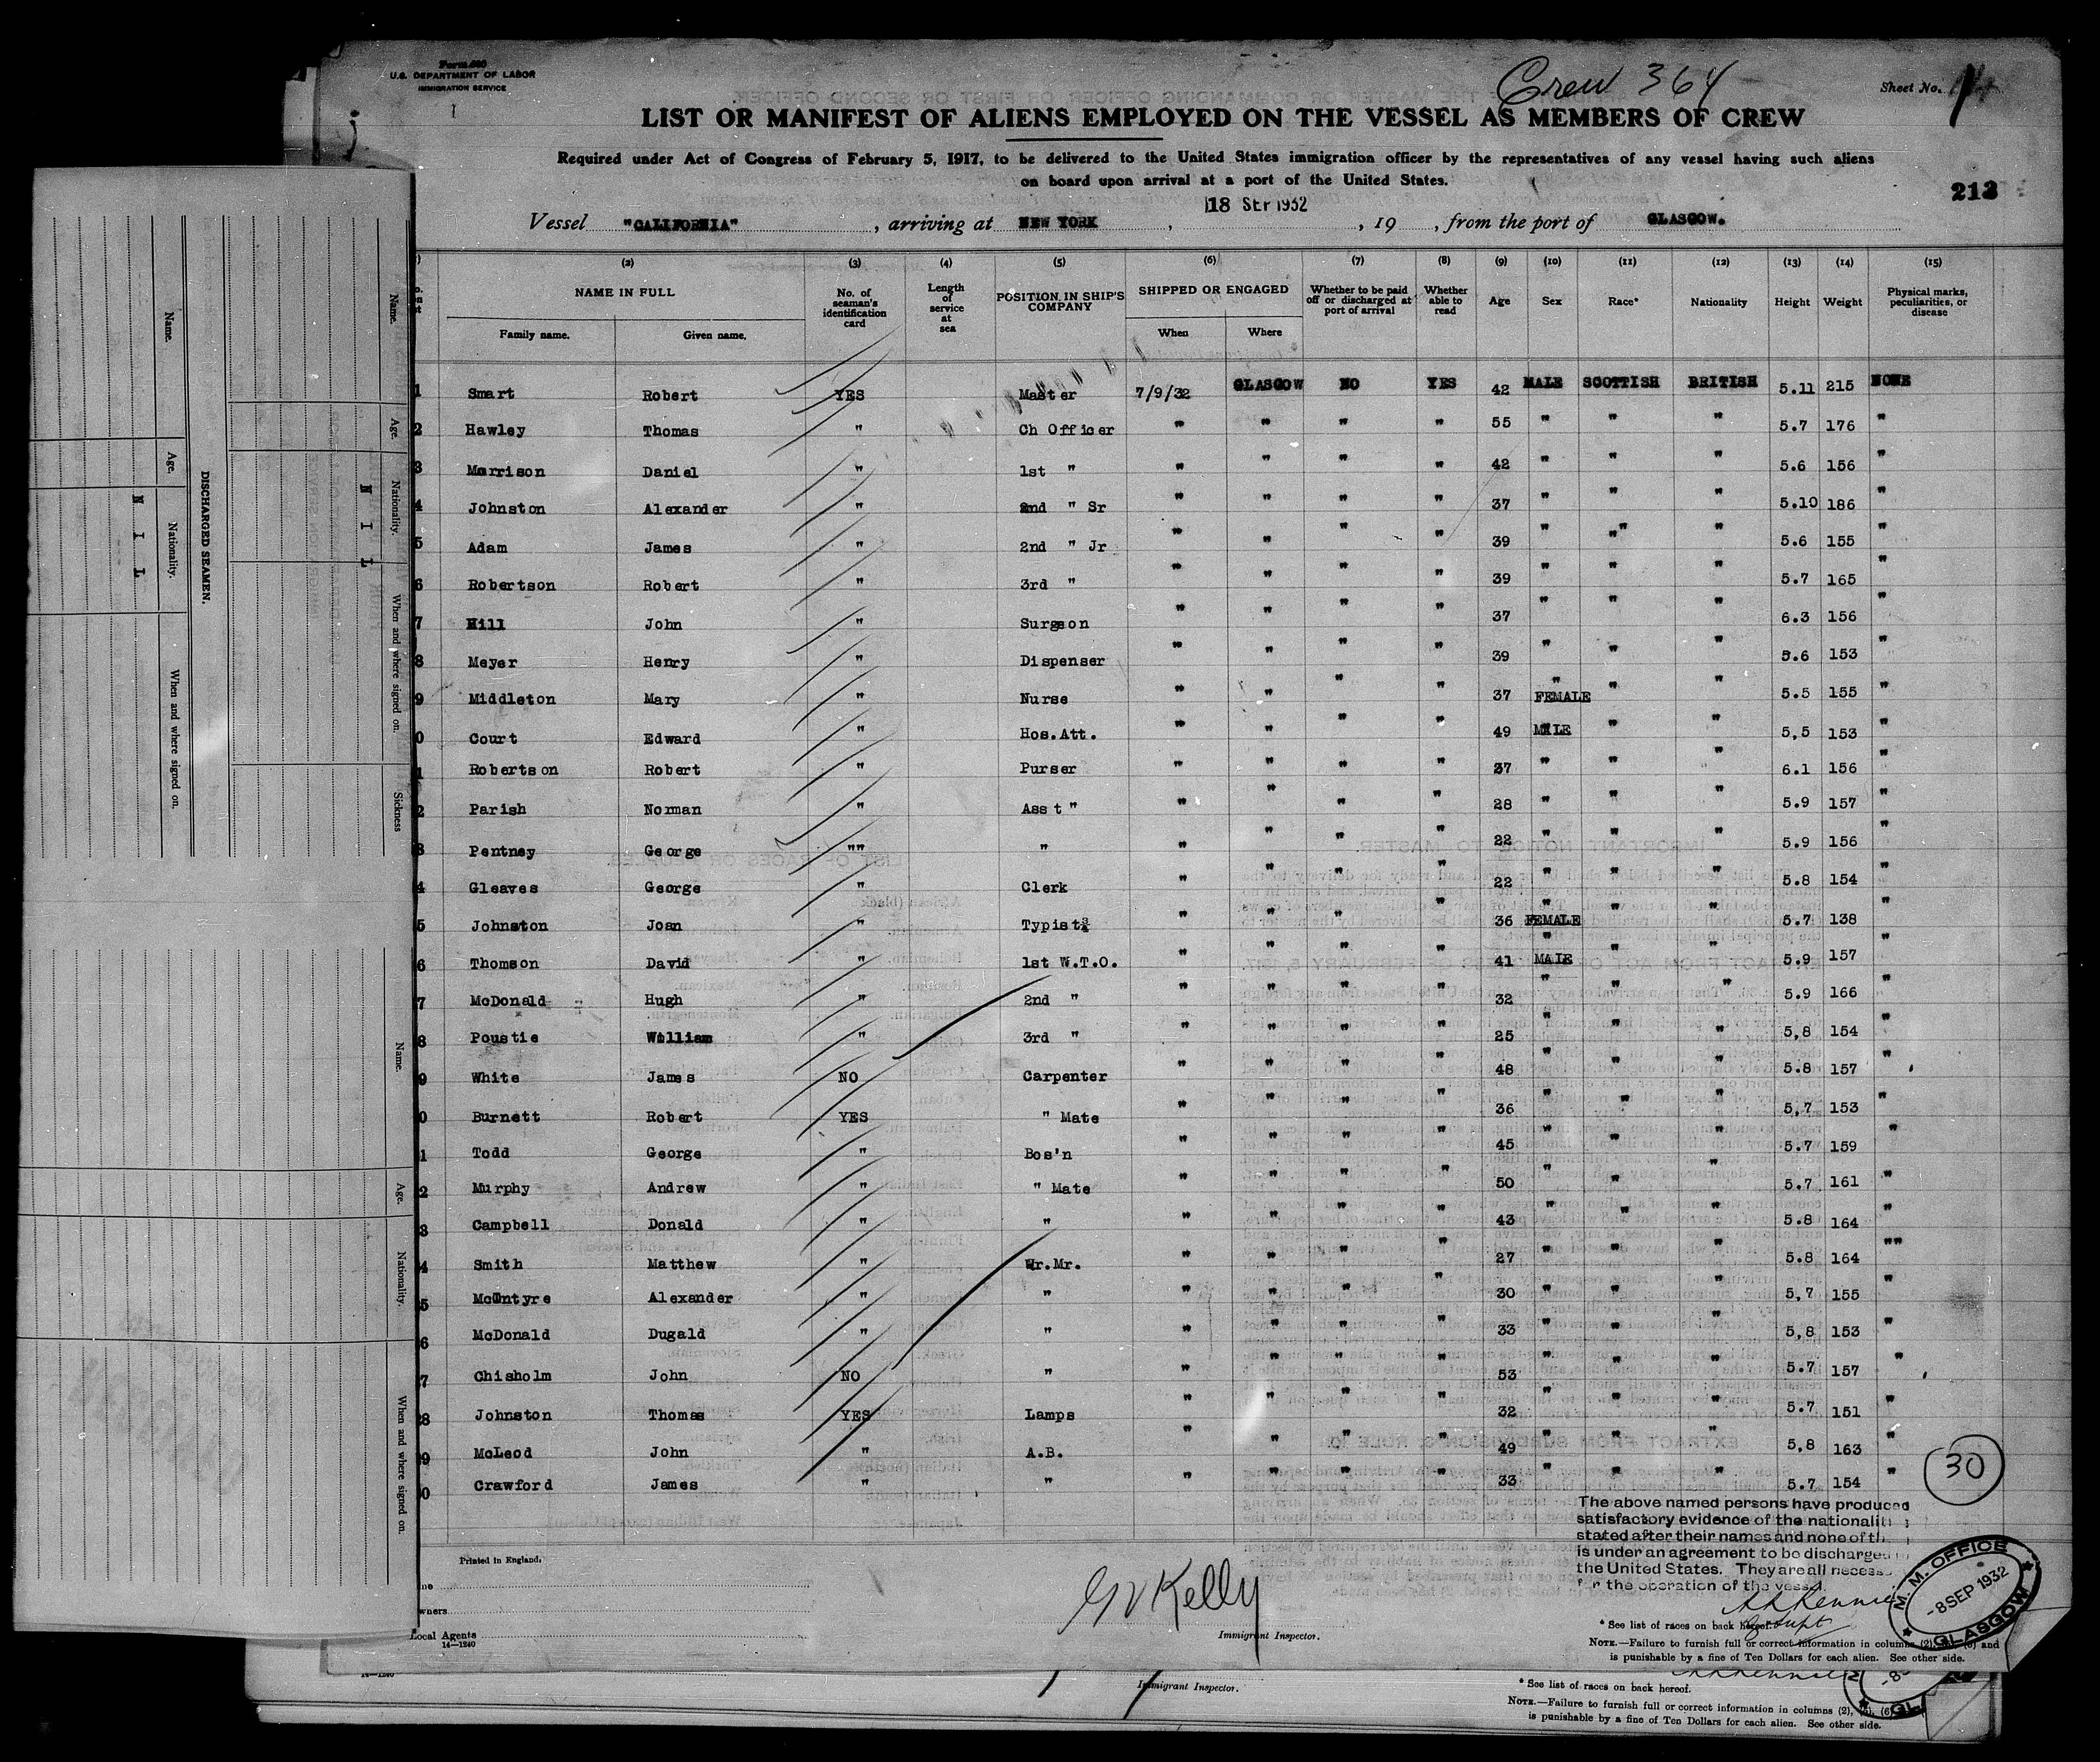 Form 680
U.S. DEPARTMENT OF LABOR
IMMIGRATION SERVICE
Crew 364
Sheet No. 1
LIST OR MANIFEST OF ALIENS EMPLOYED ON THE VESSEL AS MEMBERS OF CREW
Required under Act of Congress of February 5, 1917, to be delivered to the United States immigration officer by the representatives of any vessel having such aliens
on board upon arrival at a port of the United States.
213
18 SEP 1932
Vessel "CALIFORNIA", arriving at NEW YORK, , 19 , from the port of GLASGOW.
(2) (3) (4) (5) (6) (7) (8) (9) (10) (11) (12) (13) (14) (15)
NAME IN FULL No. of seaman's identification card Length of service at sea POSITION IN SHIP'S COMPANY SHIPPED OR ENGAGED Whether to be paid off or discharged at port of arrival Whether able to read Age Sex Race* Nationality Height Weight Physical marks, peculiarities, or disease
Family name. Given name. When Where
1 Smart Robert YES Master 7/9/32 GLASGOW NO YES 42 MALE SCOTTISH BRITISH 5.11 215 NONE
2 Hawley Thomas " Ch Officer " " " " 55 " " " 5.7 176 "
3 Morrison Daniel " 1st " " " " " 42 " " " 5.6 156 "
4 Johnston Alexander " 2nd " Sr " " " " 37 " " " 5.10 186 "
5 Adam James " 2nd " Jr " " " " 39 " " " 5.6 155 "
6 Robertson Robert " 3rd " " " " " 39 " " " 5.7 165 "
7 Hill John " Surgeon " " " " 37 " " " 6.3 156 "
8 Meyer Henry " Dispenser " " " " 39 " " " 5.6 153 "
9 Middleton Mary " Nurse " " " " 37 " FEMALE " " 5.5 155 "
0 Court Edward " Hos.Att. " " " " 49 MALE " " 5,5 153 "
1 Robertson Robert " Purser " " " " 37 " " " 6.1 156 "
2 Parish Norman " Asst " " " " " 28 " " " 5.9 157 "
3 Pentney George "" " " " " " 22 " " " 5.9 156 "
4 Gleaves George " Clerk " " " " 22 " " " 5.8 154 "
5 Johnston Joan " Typist " " " " 36 FEMALE " " 5.7 138 "
6 Thomson David " 1st W.T.O. " " " " 41 " MALE " " 5.9 157 "
7 McDonald Hugh " 2nd " " " " " 32 " " " 5.9 166 "
8 Poustie William " 3rd " " " " " 25 " " " 5,8 154 "
9 White James NO Carpenter " " " " 48 " " " 5.8 157 "
0 Burnett Robert YES " Mate " " " " 36 " " " 5,7 153 "
1 Todd George " Bos'n " " " " 45 " " " 5.7 159 "
2 Murphy Andrew " " Mate " " " " 50 " " " 5.7 161 "
3 Campbell Donald " " " " " " 43 " " " 5.8 164 "
4 Smith Matthew " Qr.Mr. " " " " 27 " " " 5.8 164 ""
5 McIntyre Alexander " " " " " " 30 " " " 5,7 155 "
6 McDonald Dugald " " " " " " 33 " " " 5,8 153 "
7 Chisholm John NO " " " " " 53 " " " 5.7 157 "
8 Johnston Thomas YES Lamps " " " " 32 " " " 5.7 151 "
9 McLeod John " A.B. " " " " 49 " " " 5,8 163 "
0 Crawford James " " " " " " 33 " " " 5.7 154 "
30
The above named persons have produced
satisfactory evidence of the nationaliti
stated after their names and none of th
is under an agreement to be discharge
the United States. They are all necess
for the operation of the vessel.
M. M. OFFICE
-8 SEP 1932
GLASGOW
Printed in England.
wners
Local Agents
14—1240
G V Kelly
Immigrant Inspector.
* See list of races on back hereof.
NOTE.—Failure to furnish full or correct information in columns (2), (5), (6) and
is punishable by a fine of Ten Dollars for each alien. See other side.
Immigrant Inspector.
* See list of races on back hereof.
NOTE.—Failure to furnish full or correct information in columns (2), (5), (6)
is punishable by a fine of Ten Dollars for each alien. See other side.
DISCHARGED SEAMEN.
Name. Age. Nationality. When and where signed on.
NIL
Name. Age. Nationality. When and where signed on. Sickness
NIL
Name. Age. Nationality. When and where signed on.